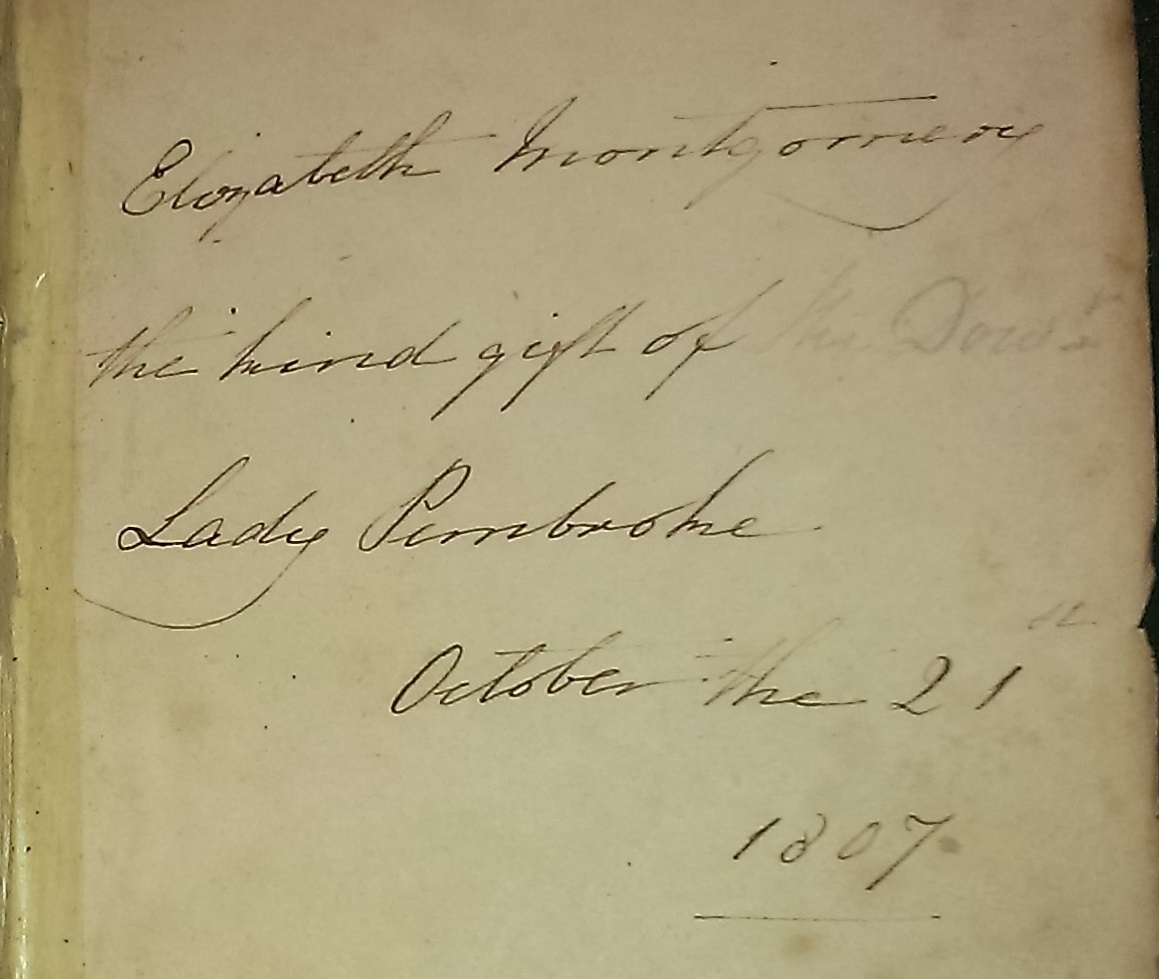 Elizabeth Montgomery
the kind gift of the Dow.r
Lady Pembroke
October the 21
1807